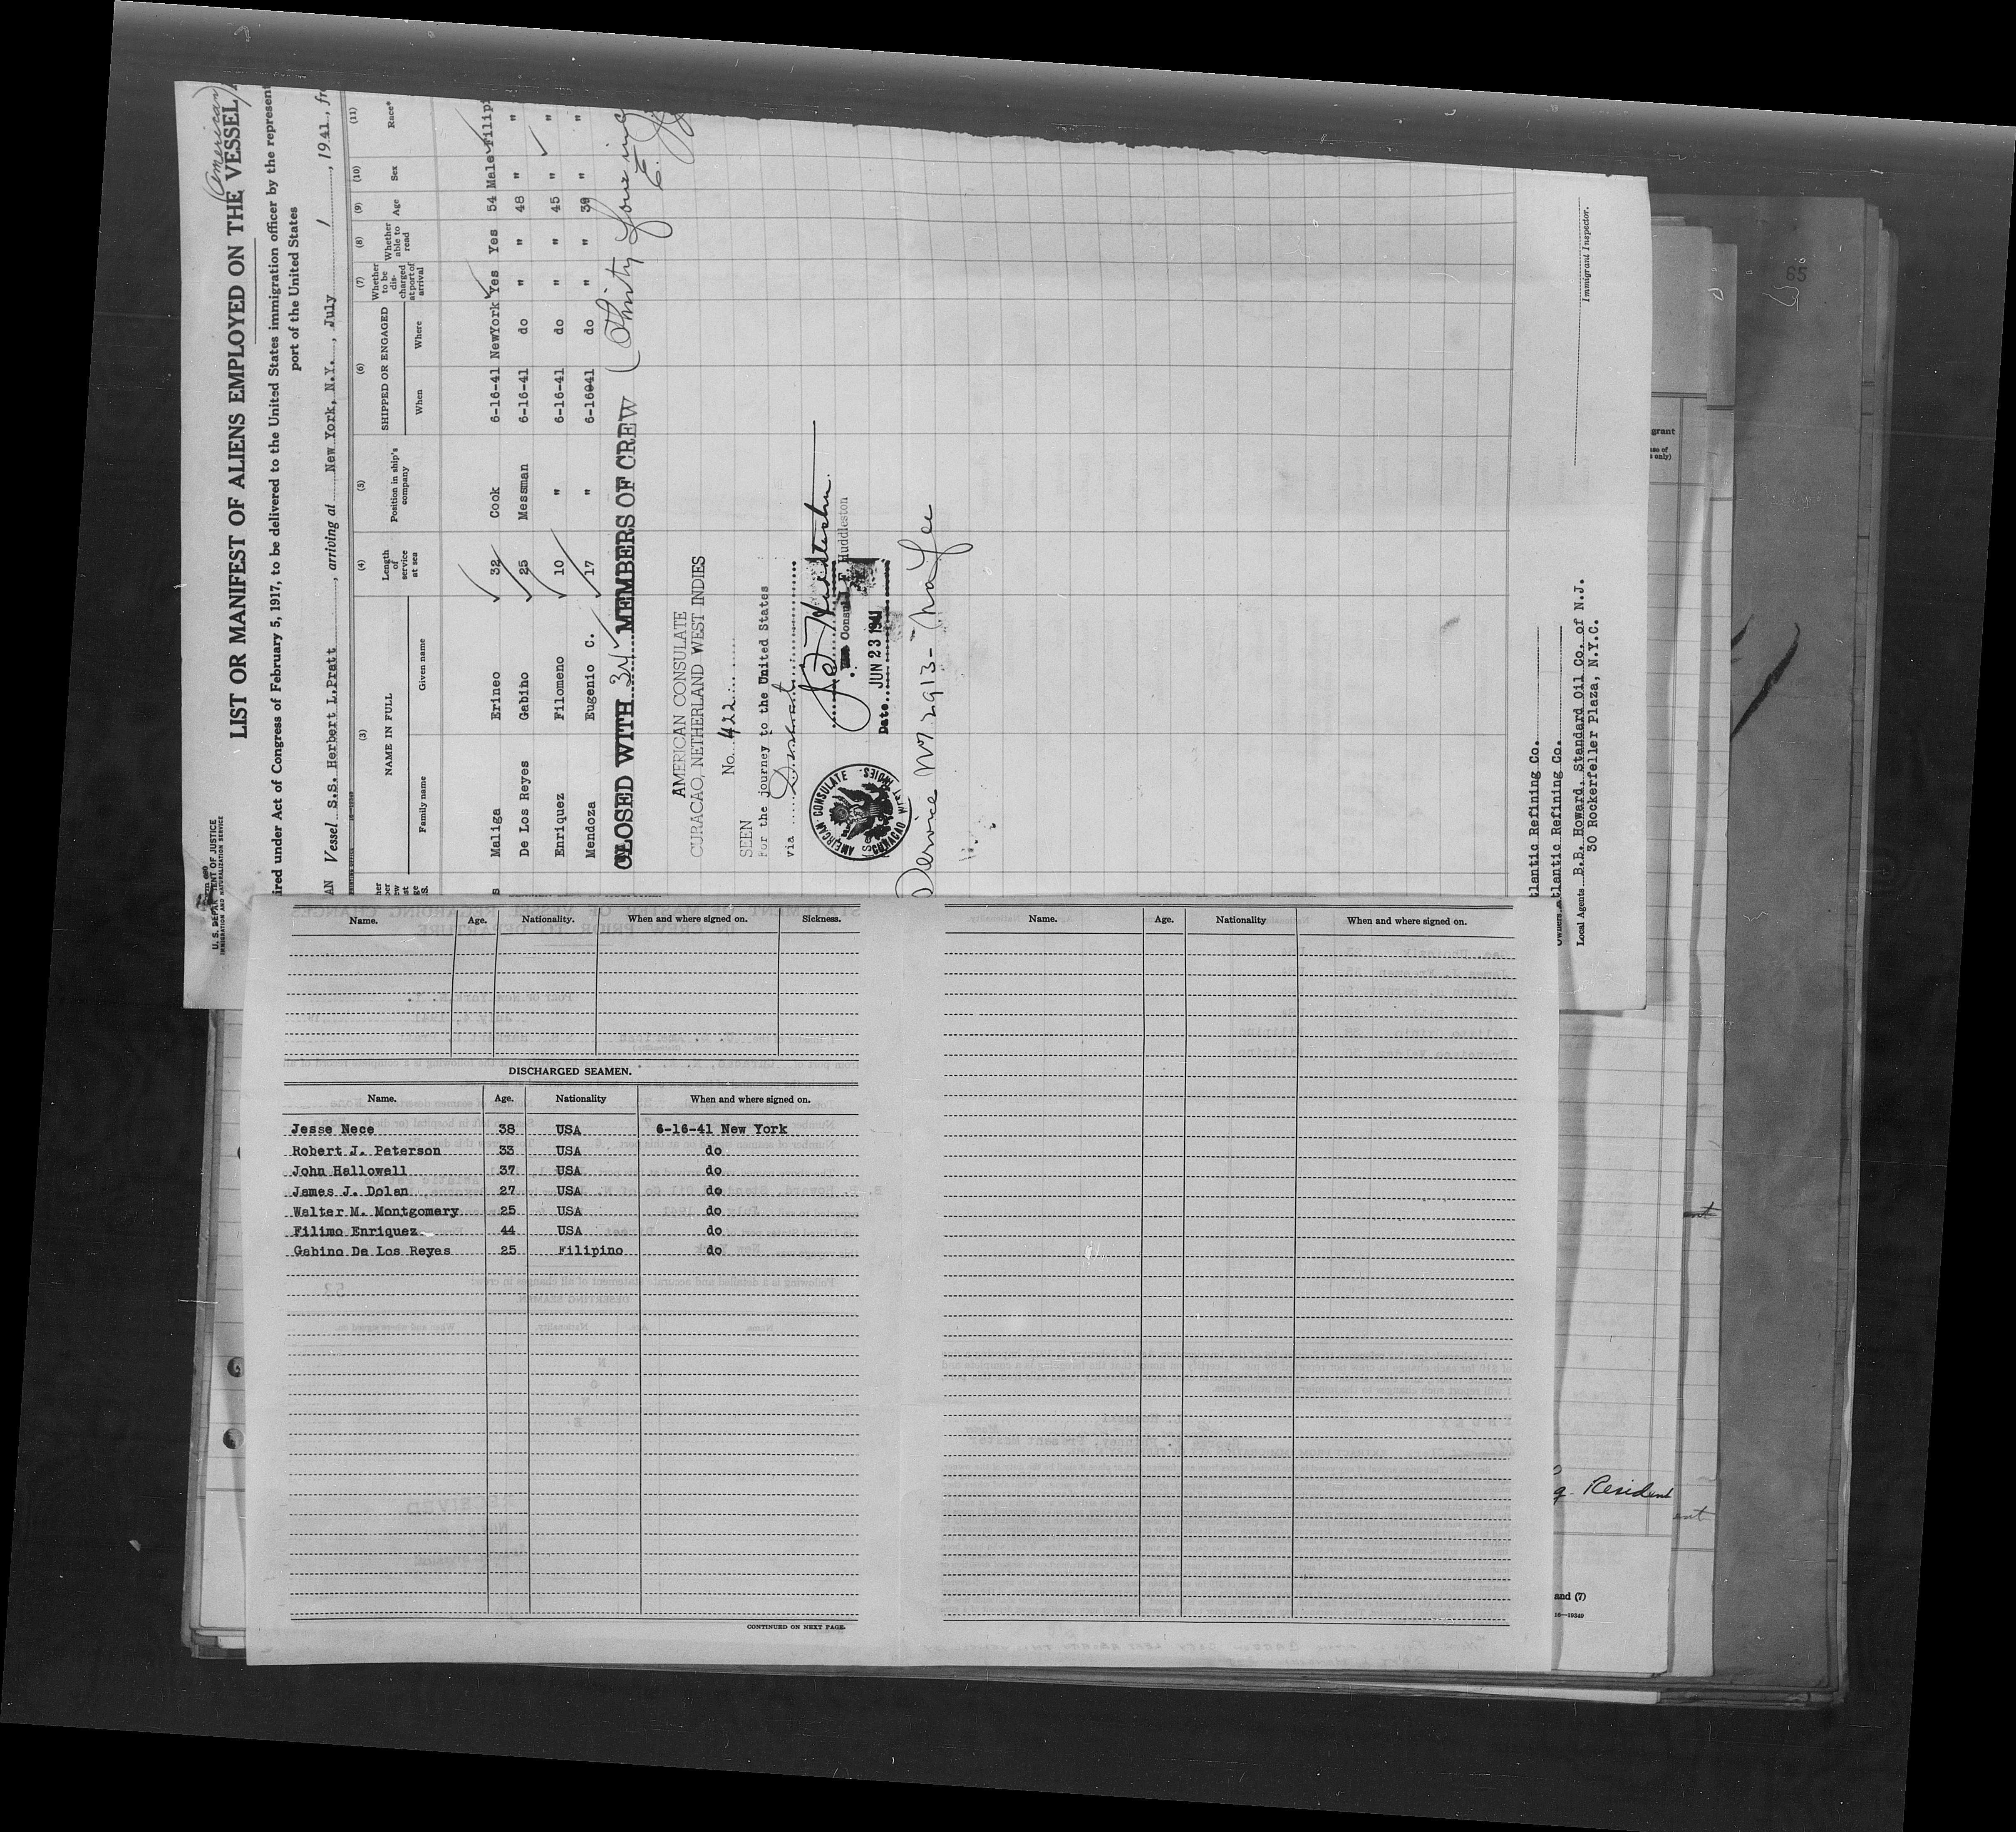 (American)
LIST OR MANIFEST OF ALIENS EMPLOYED ON THE VESSEL
U. S. DEPARTMENT OF JUSTICE
IMMIGRATION AND NATURALIZATION SERVICE
ired under Act of Congress of February 5, 1917, to be delivered to the United States immigration officer by the represent
port of the United States
AN Vessel S.S. Herbert L.Pratt, arriving at New York, N.Y., July 1, 1941, fr
(3) (4) (5) (6) (7) (8) (9) (10) (11)
NAME IN FULL Length of service at sea Position in ship's company SHIPPED OR ENGAGED Whether to be discharged at port of arrival Whether able to read Age Sex Race*
Family name Given name When Where
Maliga Erineo 32 Cook 6-16-41 NewYork Yes Yes 54 Male Filipi
De Los Reyes Gabino 25 Messman 6-16-41 do " " 48 " "
Enriquez Filomeno 10 " 6-16-41 do " " 45 " "
Mendoza Eugenio C. 17 " 6-16041 do " " 39 " "
CLOSED WITH 34 MEMBERS OF CREW (Thirty four inc
AMERICAN CONSULATE
CURACAO, NETHERLAND WEST INDIES
No. 422
SEEN
For the journey to the United States
via Direct
Consul F. Huddleston
Date JUN 23 1941
AMERICAN CONSULATE
CURACAO WEST INDIES
Service No. 2913- No Fee
tlantic Refining Co.
Owners tlantic Refining Co.
Local Agents B.B. Howard, Standard Oil Co. of N.J.
30 Rockerfeller Plaza, N.Y.C.
Immigrant Inspector.
65
grant
use of
only)
Name. Age. Nationality. When and where signed on. Sickness.
DISCHARGED SEAMEN.
Name. Age. Nationality When and where signed on.
Jesse Nece 38 USA 6-16-41 New York
Robert J. Peterson 33 USA do
John Hallowell 37 USA do
James J. Dolan 27 USA do
Walter M. Montgomery 25 USA do
Filimo Enriquez 44 USA do
Gabino De Los Reyes 25 Filipino do
CONTINUED ON NEXT PAGE.
Name. Age. Nationality When and where signed on.
Resident
and (7)
16—19349